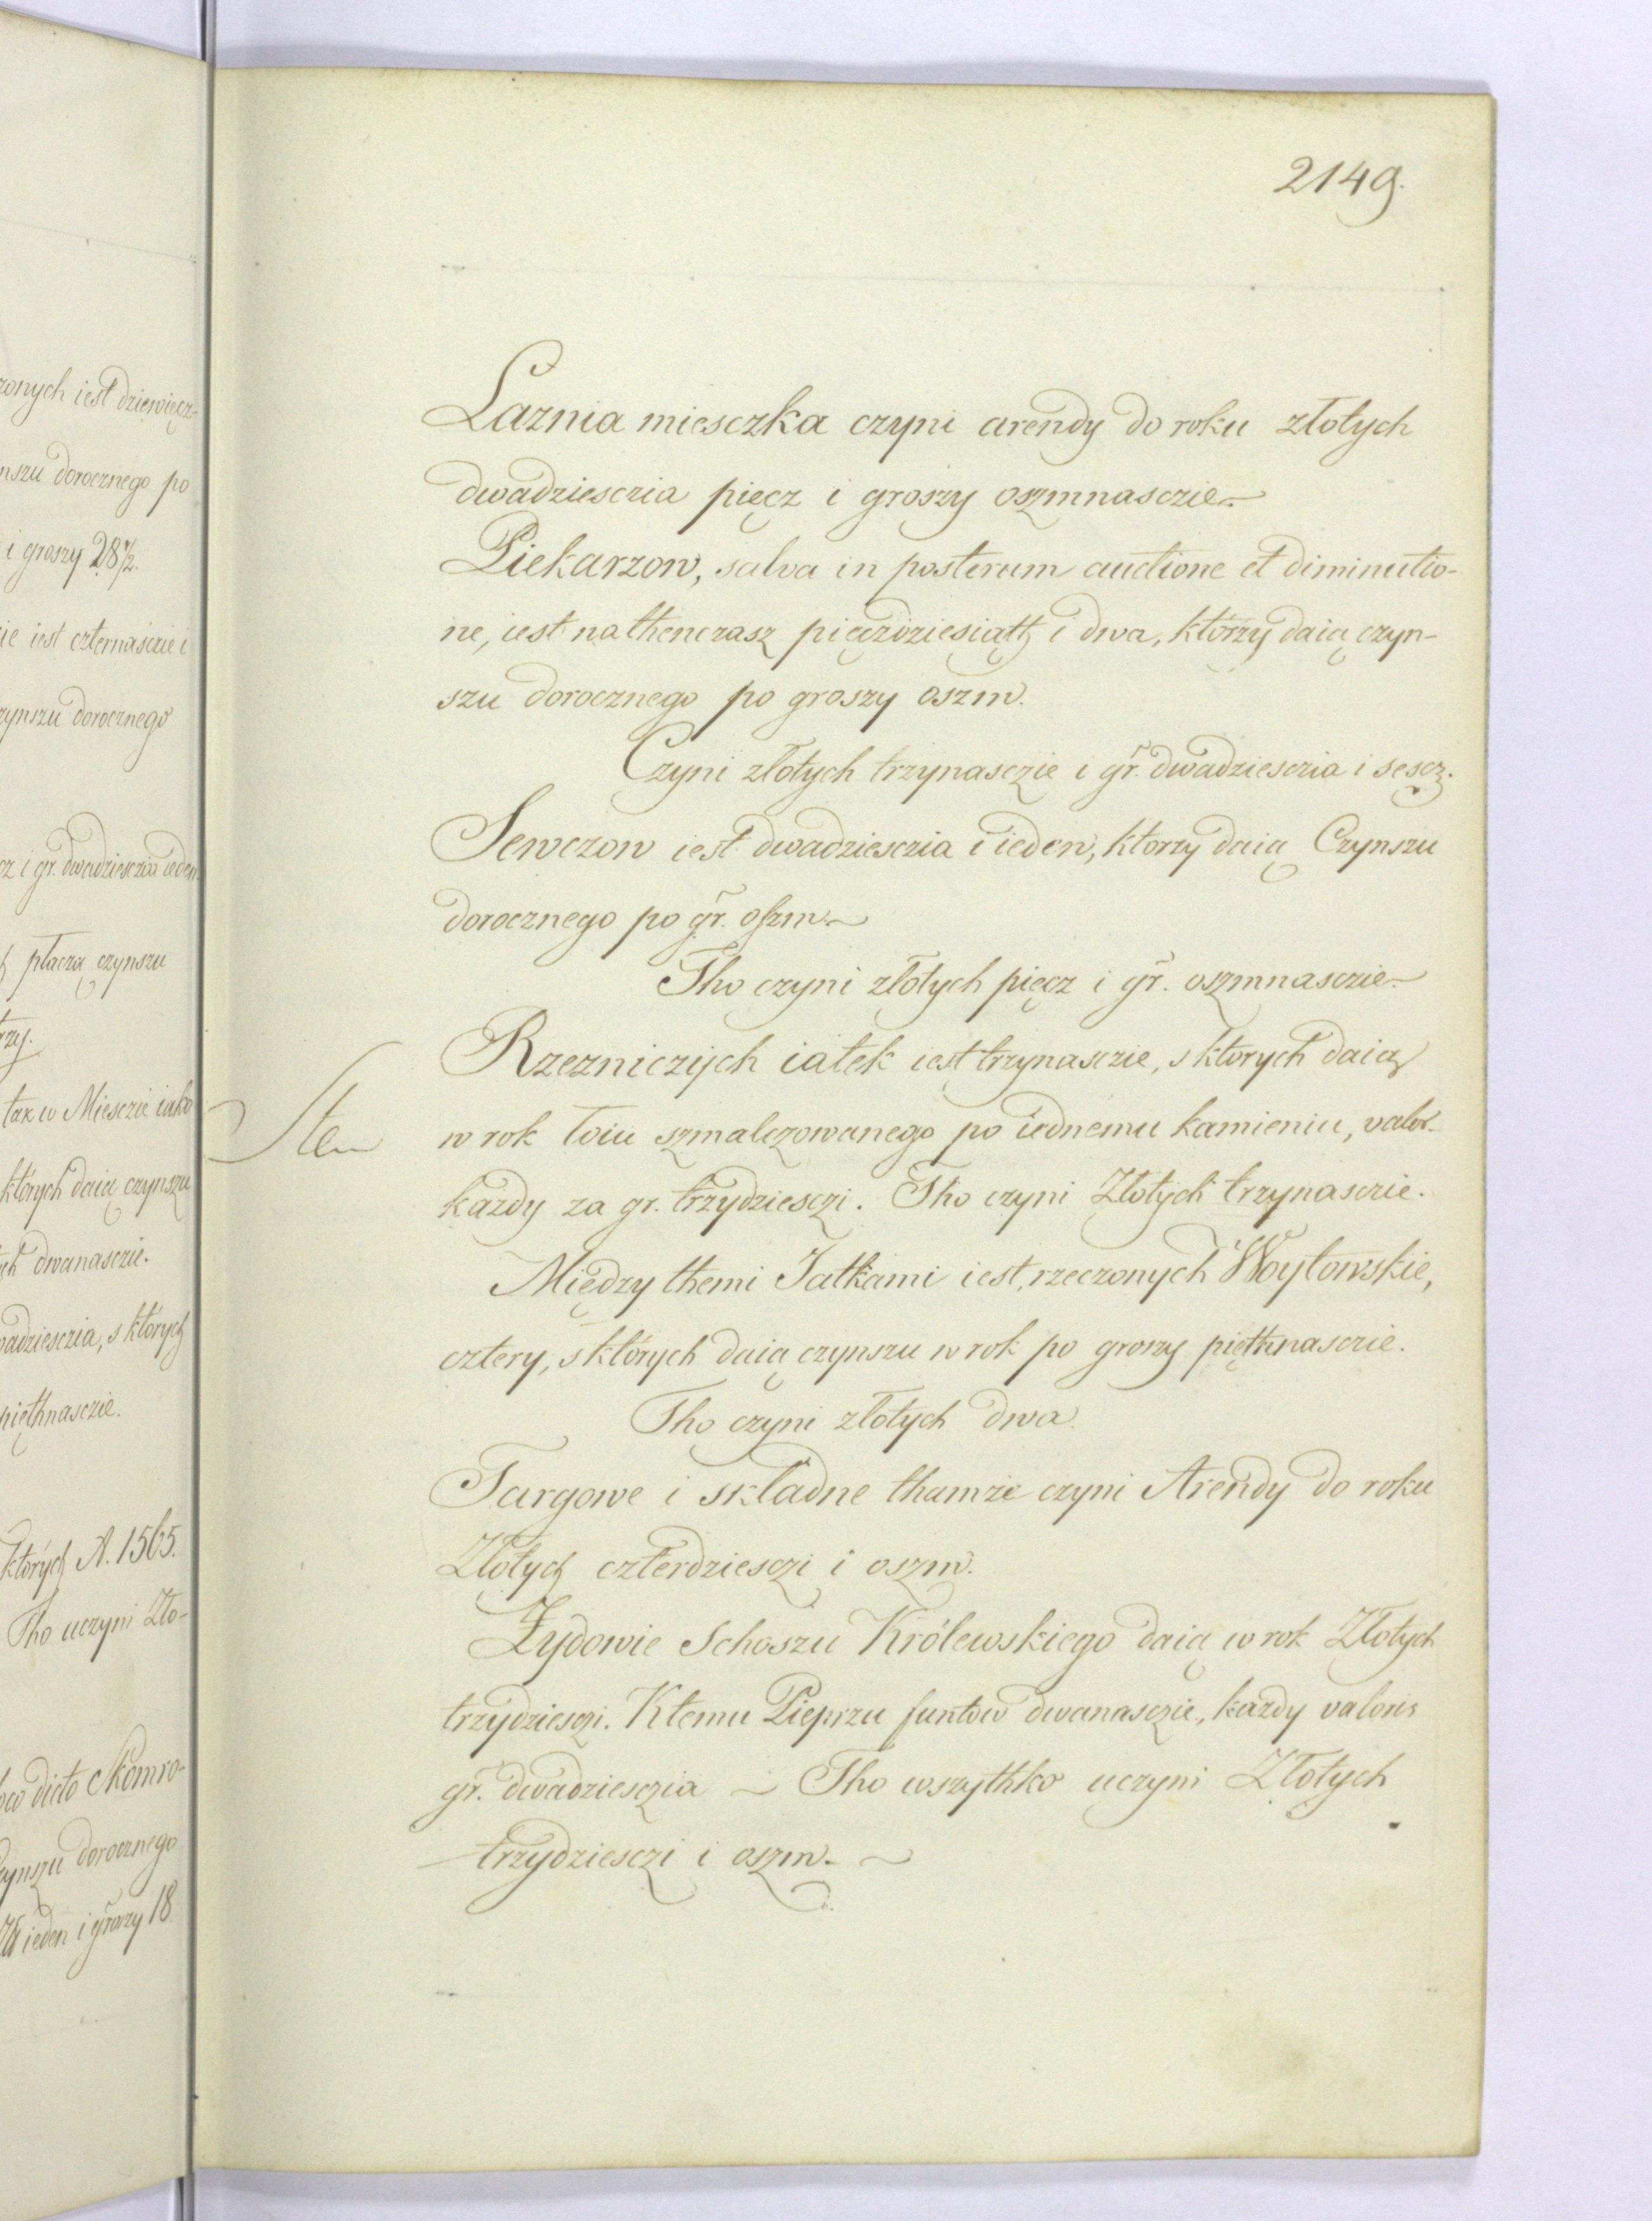 zonych iest dziewięcz-
nszu dorocznego po
i groszy 28 1/2.
ie iest czternaście i
zynszu dorocznego
cz i gr. dwadziesczia ieden.
płaczą czynszu
trzy.
tax w Miesczie iako
których daią czynszu
ych dwanasczie.
wadziesczia, s których
pięthnasczie.
których A. 1565.
Tho uczyni Zło-
dicto Skomro-
Czynszu dorocznego
ieden i groszy 18.
2149.
Laznia miesczka czyni arendy do roku złotych
dwadziesczia pięcz i groszy oszmnasczie.
Piekarzow, salva in posterum auctione et diminutio-
ne, iest nathenczasz pięczdziesiąth i dwa, którzy daią czyn-
szu dorocznego po groszy oszm.
Czyni złotych trzynasczie i gr. dwadziesczia i sescz.
Sewczow iest dwadziesczia i ieden, ktorzy daią Czynszu
dorocznego po gr. oszm.
Tho czyni złotych pięcz i gr. oszmnasczie.
Rzezniczych iatek iest trzynasczie, s ktorych daią
w rok łoiu szmalczowanego po iednemu kamieniu, valor.
kazdy za gr. trzydziesczi. Tho czyni Złotych trzynasczie.
Między themi Jatkami iest, rzeczonych Woytowskie,
cztery, s których daią czynszu w rok po groszy pięthnasczie.
Tho czyni złotych dwa.
Targowe i składne thamze czyni Arendy do roku
Złotych czterdziesczi i oszm.
Żydowie Schoszu Królewskiego daią w rok Złotych
trzydziesczi. Ktemu Pieprzu funtow dwanasczie, kazdy valoris
gr. dwadziesczia ~ Tho wszythko uczyni Złotych
trzydziesczi i oszm. ~